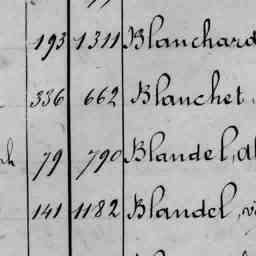 193 1311 Blanchard
336 662 Blanchet
79 790 Blandel, al
141 1182 Blandel, v